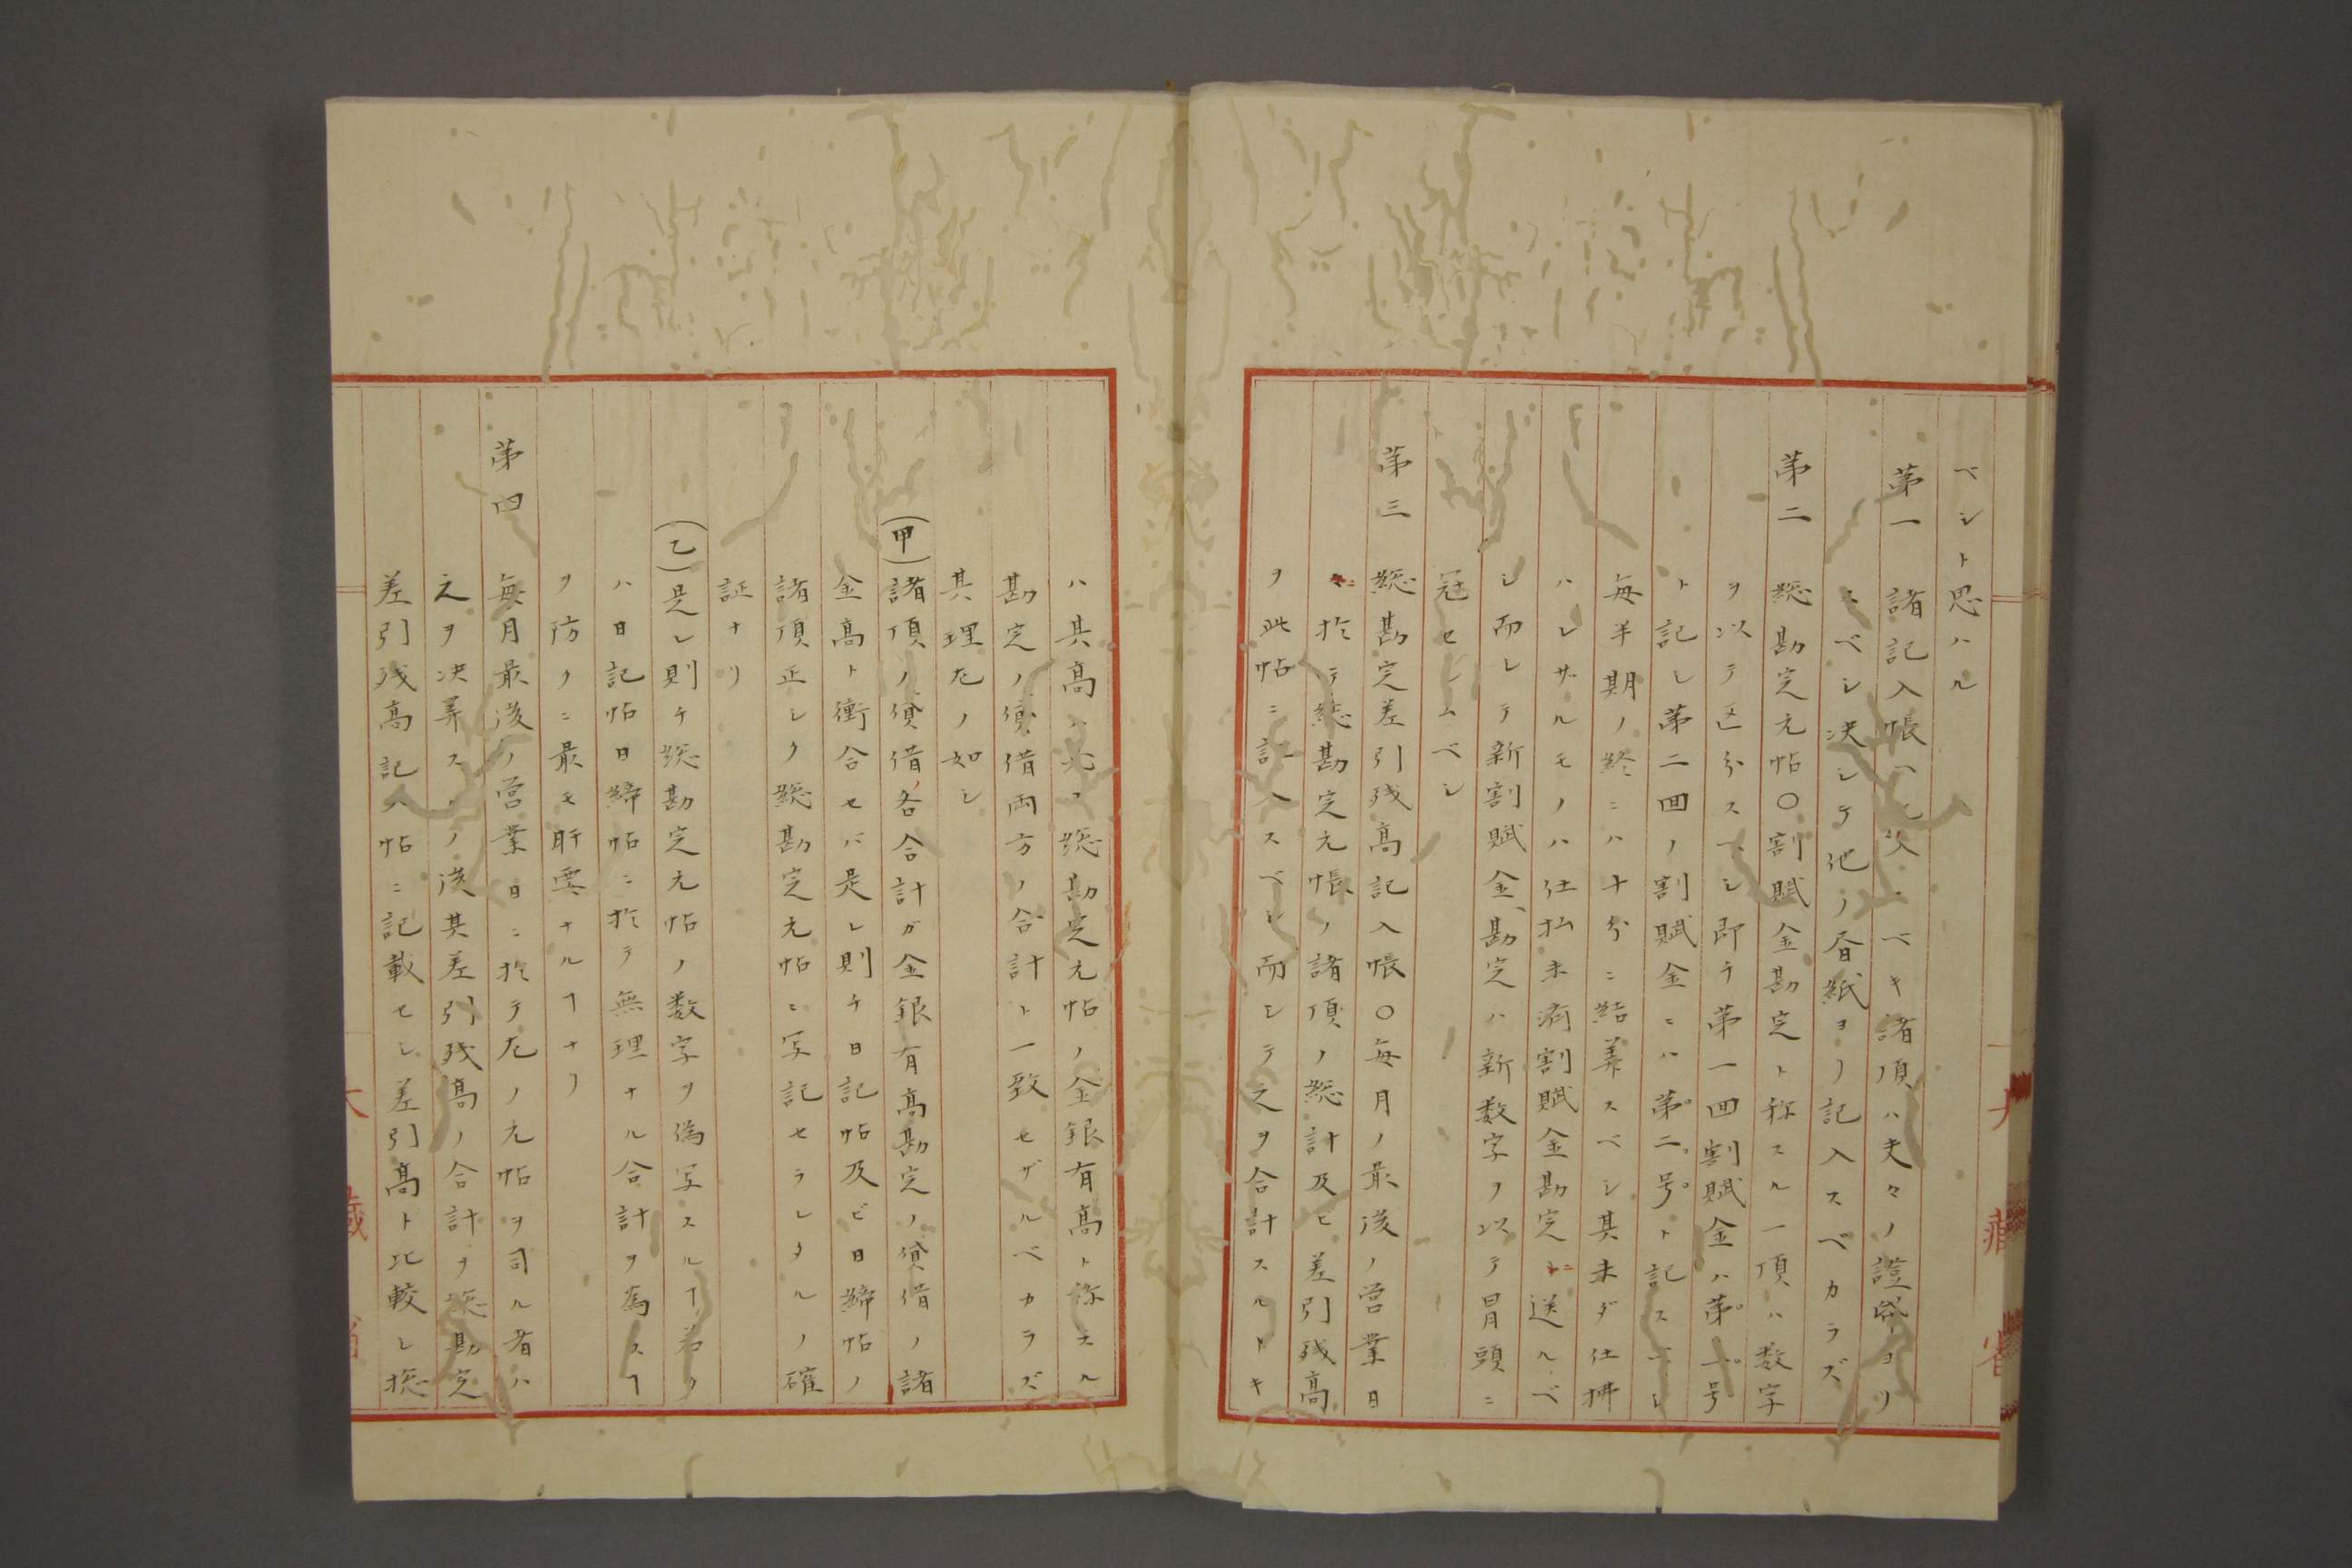 ベシト思ハル
第一 諸記入帳ヘ記入スベキ諸項ハ夫々ノ證券ヨリ
スベシ決シテ他ノ屑紙ヨリ記入スベカラズ
第二 総勘定元帖〇割賦金勘定ト称スル一項ハ数字
ヲ以テ区分スベシ即チ第一回割賦金ハ第一号
ト記シ第二回ノ割賦金ニハ第二号ト記スベシ
毎半期ノ終ニハ十分ニ結算スベシ其未ダ仕拂
ハレザルモノハ仕払未済割賦金勘定ニ送ルベ
シ而シテ新割賦金勘定ハ新数字ヲ以テ冒頭ニ
冠セシムベシ
第三 総勘定差引残高記入帳〇毎月ノ最後ノ営業日
ニ於テ総勘定元帳ノ諸項ノ総計及ビ差引残高
ヲ此帖ニ記入スベシ而シテ之ヲ合計スルトキ
ハ其高ハ先ヅ総勘定元帖ノ金銀有高ト称スル
勘定ノ貸借両方ノ合計ト一致セザルベカラズ
其理左ノ如シ
(甲)諸項ノ貸借各合計ガ金銀有高勘定ノ貸借ノ諸
金高ト衝合セバ是レ則チ日記帖及ビ日締帖ノ
諸項正シク総勘定元帖ニ写記セラレタルノ確
証ナリ
(乙)是レ則チ総勘定元帖ノ数字ヲ偽写スルヿ若ク
ハ日記帖日締帖ニ於テ無理ナル合計ヲ為スヿ
ヲ防クニ最モ肝要ナルヿナリ
第四 毎月最後ノ営業日ニ於テ左ノ元帖ヲ司ル者ハ
之ヲ決算スルノ後其差引残高ノ合計ヲ総勘定
差引残高記入帖ニ記載セシ差引高ト比較シ総
大蔵省